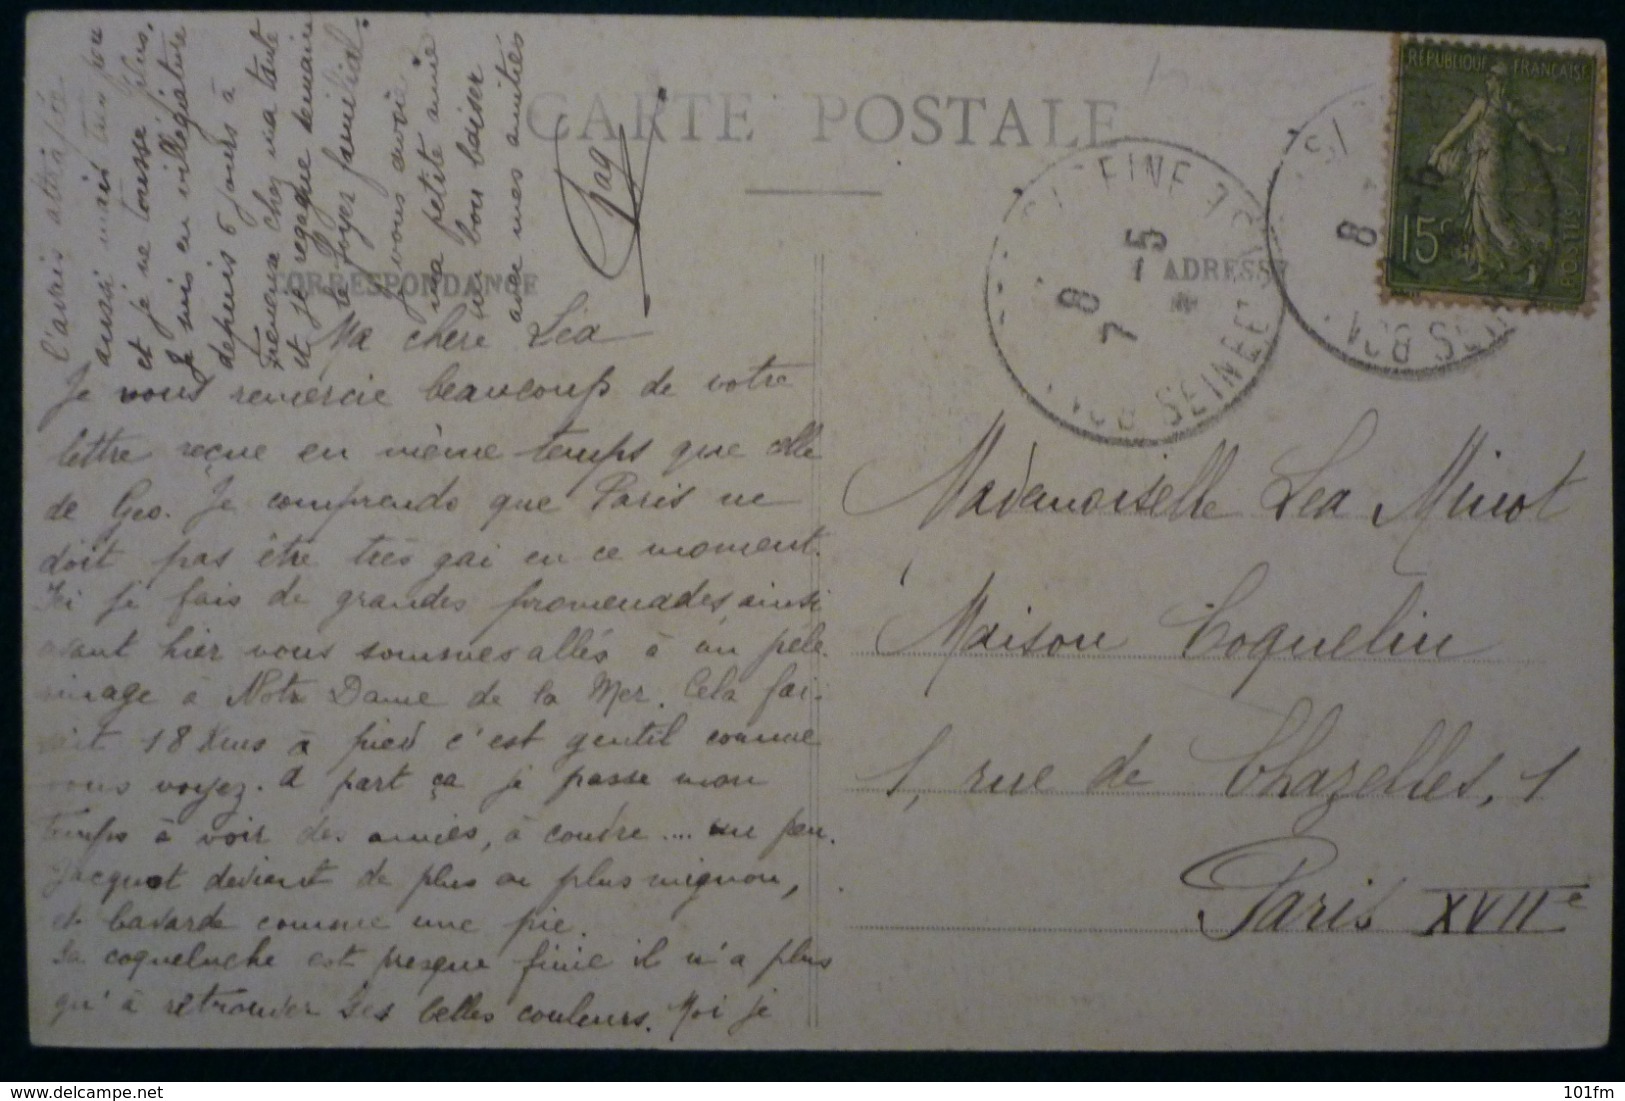 CARTE POSTALE
CORRESPONDANCE
ADRESSE
RÉPUBLIQUE FRANÇAISE
15c
POSTES
8 -5
7
SEINE ET
8
Ma chere Léa
Je vous remercie beaucoup de votre
lettre reçue en même temps que celle
de Geo. Je comprends que Paris ne
doit pas être très gai en ce moment.
Ici je fais de grandes promenades ainsi
avant hier nous sommes allés à un pèle-
rinage à Notre Dame de la Mer. Cela fai-
sait 18 Kms à pied c'est gentil comme
vous voyez. A part ça je passe mon
temps à voir des amies, à coudre .... un peu.
Jacquot devient de plus en plus mignon,
et bavarde comme une pie.
Sa coqueluche est presque finie il n'a plus
qu'à retrouver ses belles couleurs. Moi je
l'avais attrapée
aussi mais très peu
et je ne tousse plus.
Je suis en villégiature
depuis 6 jours à
chez ma tante
et je regagne
le foyer familial.
Je vous envoie
ma petite amie
un bon baiser
avec mes amitiés
Mademoiselle Lea Minot
Maison Coquelin
1, rue de Chazelles, 1
Paris XVIIe
delcampe.net
101fm